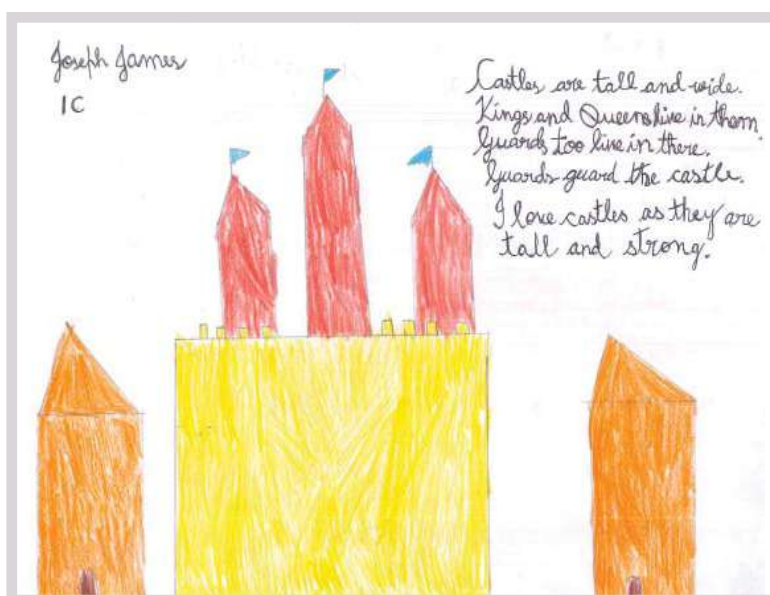 Joseph James
1C
Castles are tall and wide.
Kings and Queens live in them.
Guards too live in there.
Guards guard the castle.
I love castles as they are
tall and strong.